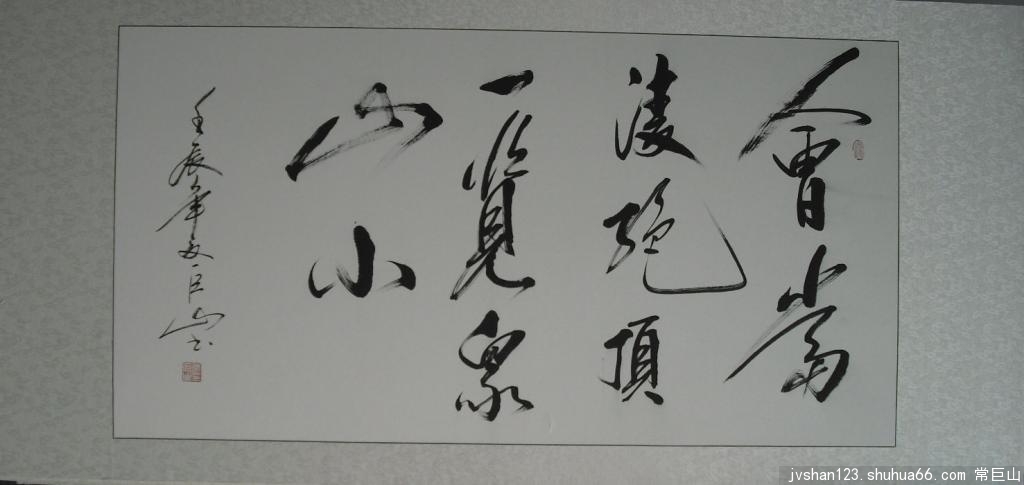 會當
淩絶頂
一覽衆
山小
壬辰年夏巨山书
jvshan123.shuhua66.com 常巨山